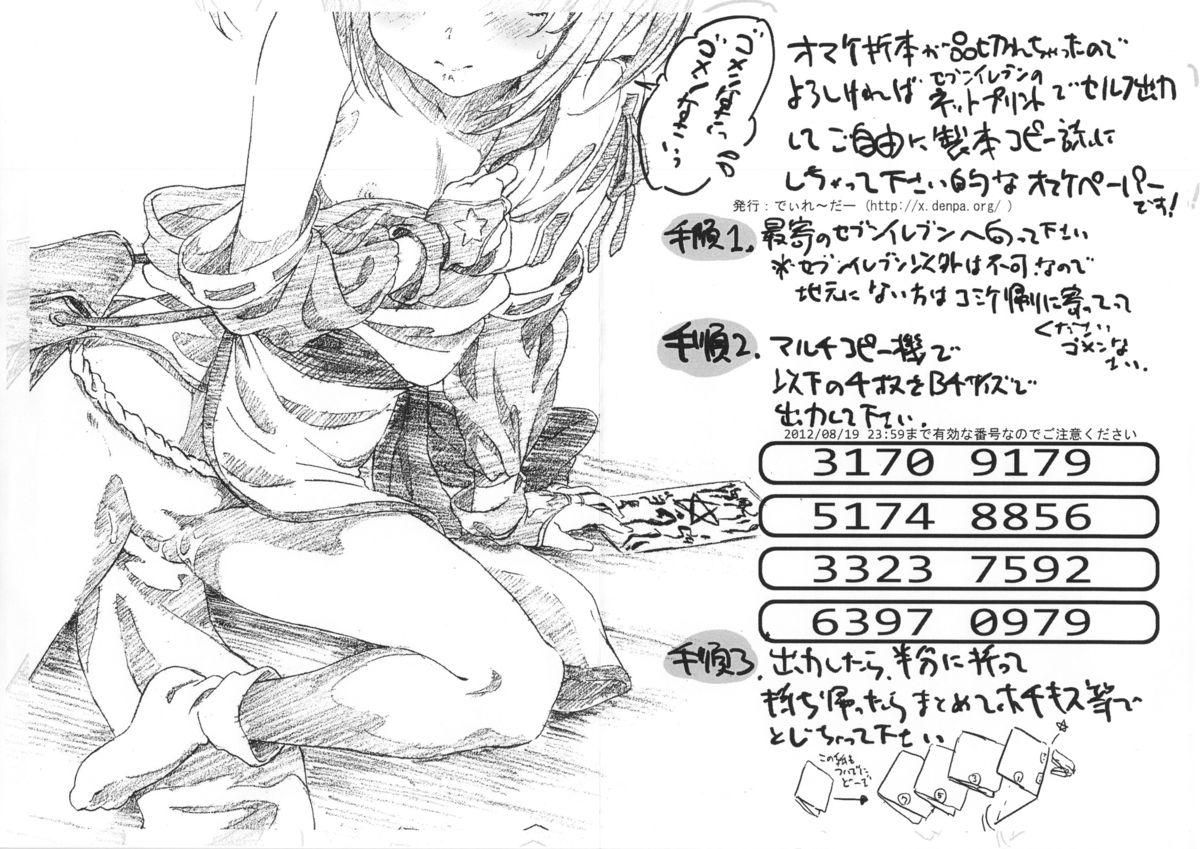 オマケ折本が品切れちゃったので
よろしければセブンイレブンのネットプリントでセルフ出力
してご自由に製本コピー誌に
しちゃって下さい的なオマケペーパーです!
ゴメンなさい
ゴメンなさいっ
発行:でぃれ~だー (http://x.denpa.org/ )
手順1. 最寄のセブンイレブンへ向って下さい
※セブンイレブン以外は不可なので
地元にない方はコミケ帰りに寄ってって
ください
ゴメンなさい.
手順2. マルチコピー機で
以下の4枚をB4サイズで
出力して下さい.
2012/08/19 23:59まで有効な番号なのでご注意ください
3170 9179
5174 8856
3323 7592
6397 0979
手順3. 出力したら、半分に折って
持ち帰ったらまとめてホチキス等で
とじちゃって下さい
この紙も
ついでに
どーぞ
⑦
⑤
③
①